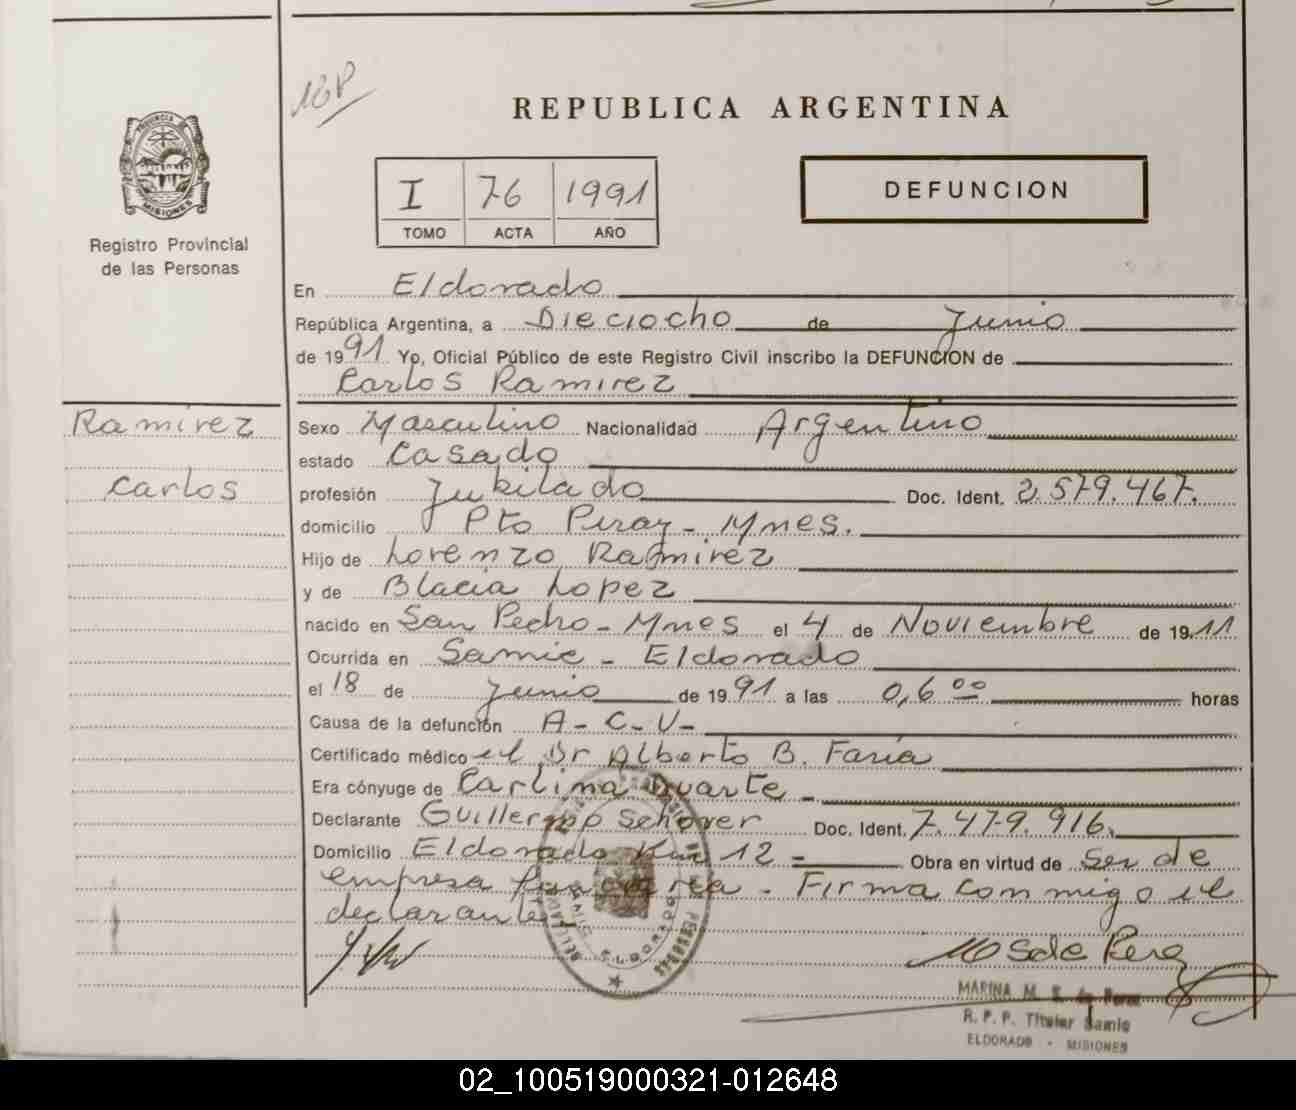 REPUBLICA ARGENTINA
PROVINCIA DE
MISIONES
Registro Provincial
de las Personas
I 76 1991
TOMO ACTA AÑO
DEFUNCION
En Eldorado
República Argentina, a Dieciocho de Junio
de 1991 Yo, Oficial Público de este Registro Civil inscribo la DEFUNCION de
Carlos Ramirez
Ramirez
Carlos
Sexo Masculino Nacionalidad Argentino
estado Casado
profesión Jubilado Doc. Ident. 2.579.467.
domicilio Pto Piray - Mnes.
Hijo de Lorenzo Ramirez
y de Blacia Lopez
nacido en San Pedro - Mnes el 4 de Noviembre de 1911
Ocurrida en Samic - Eldorado
el 18 de Junio de 1991 a las 0,6 00 horas
Causa de la defunción A - C - V -
Certificado médico el Dr Alberto B. Faria
Era cónyuge de Carlina Duarte -
Declarante Guillermo Schover Doc. Ident. 7.479.916.
Domicilio Eldorado Km 12 = Obra en virtud de Ser de
empresa funeraria - Firma conmigo el
declarante
M S de Perez
MARINA M. S. de Perez
R. P. P. Titular Samic
ELDORADO - MISIONES
02_100519000321-012648